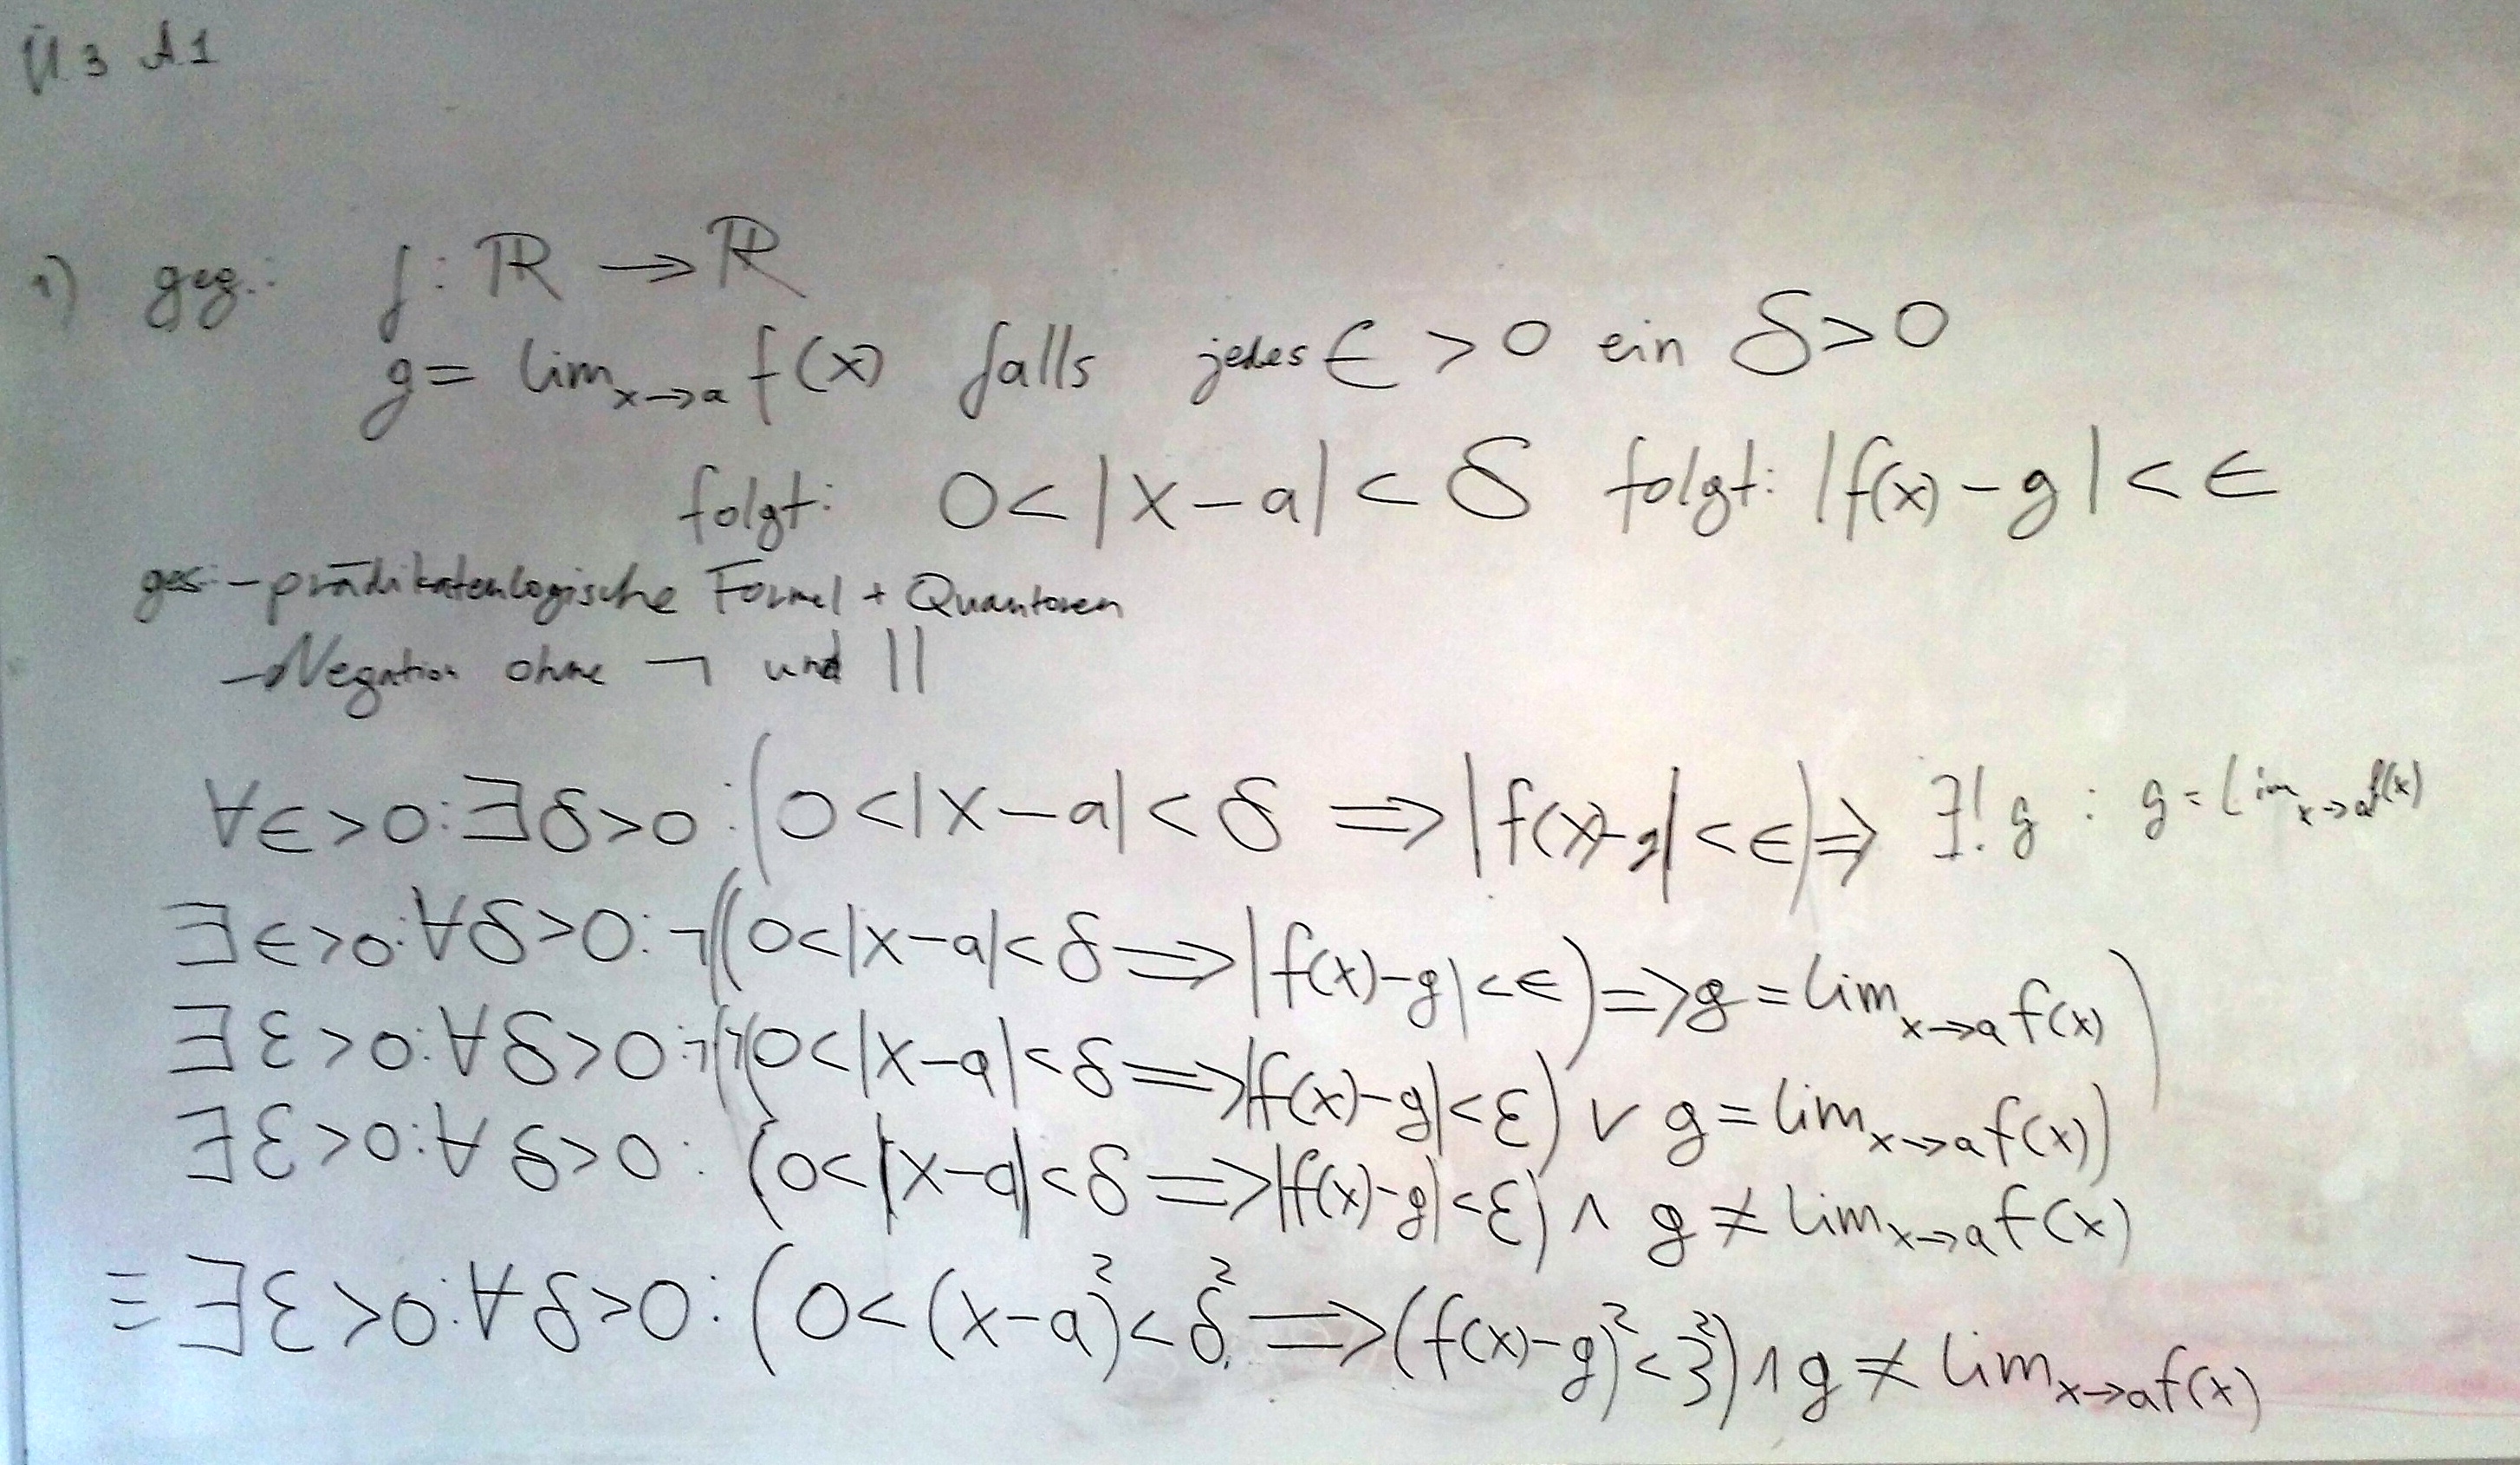 Ü.3 A.1
1) geg.: f: ℝ → ℝ
g = lim_{x→a} f(x) falls jedes ϵ > 0 ein δ > 0
folgt: 0 < |x - a| < δ folgt: |f(x) - g| < ϵ
ges: - prädikatenlogische Formel + Quantoren
- Negation ohne ¬ und ||
∀ϵ > 0: ∃δ > 0: (0 < |x - a| < δ ⟹ |f(x) - g| < ϵ) ⇒ ∃! g : g = lim_{x→a} f(x)
∃ϵ > 0: ∀δ > 0: ¬((0 < |x - a| < δ ⟹ |f(x) - g| < ϵ) ⇒ g = lim_{x→a} f(x))
∃ε > 0: ∀δ > 0: ¬(¬(0 < |x - a| < δ ⟹ |f(x) - g| < ε) ∨ g = lim_{x→a} f(x))
∃ε > 0: ∀δ > 0: (0 < |x - a| < δ ⟹ |f(x) - g| < ε) ∧ g ≠ lim_{x→a} f(x)
≡ ∃ε > 0: ∀δ > 0: (0 < (x - a)² < δ² ⟹ (f(x) - g)² < ε²) ∧ g ≠ lim_{x→a} f(x)